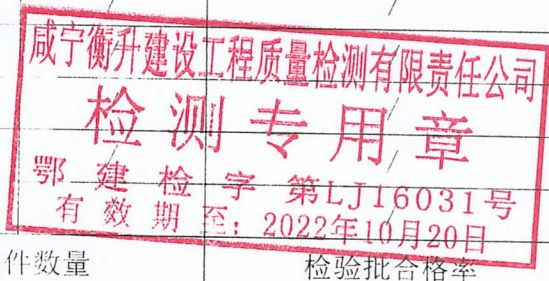 咸宁衡升建设工程质量检测有限责任公司
检测专用章
鄂建检字第LJ16031号
有效期至：2022年10月20日
件数量 检验批合格率